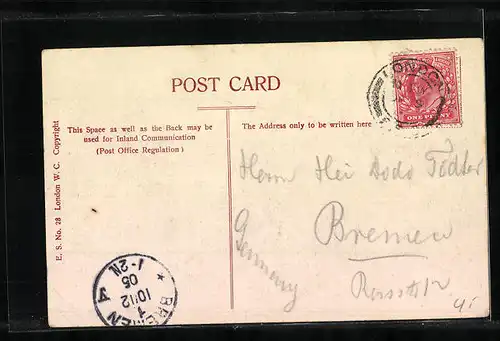 POST CARD
This Space as well as the Back may be
used for Inland Communication
(Post Office Regulation)
The Address only to be written here
E. S. No. 28 London W. C. Copyright
LONDON
ONE PENNY
Herrn Hei Dodo Tödter
Bremen
Germany
BREMEN
10/12
05
1-2N